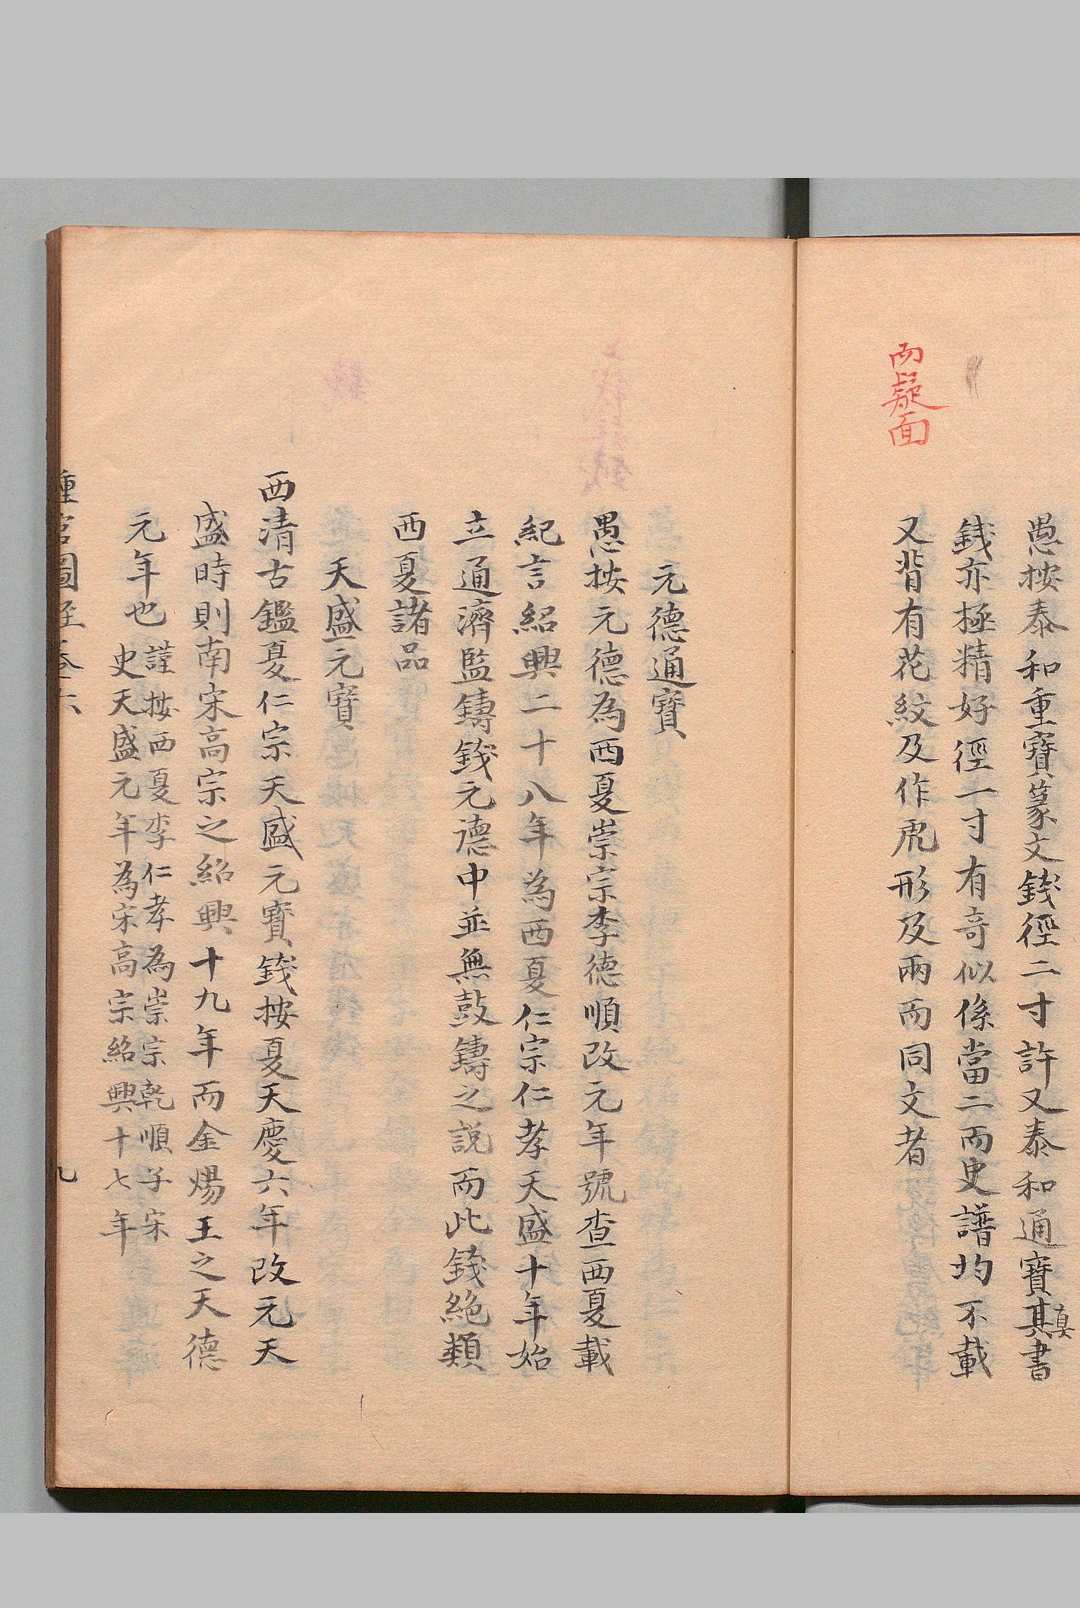 愚按泰和重寶篆文錢徑二寸許又泰和通寶其書
真
錢亦極精好徑一寸有奇似係當二而史譜均不載
又背有花紋及作虎形及兩而同文者
而疑面
元德通寶
愚按元德為西夏崇宗李德順改元年號查西夏載
紀言紹興二十八年為西夏仁宗仁孝天盛十年始
立通濟監鑄錢元德中並無鼓鑄之說而此錢絶類
西夏諸品
天盛元寶
西清古鑑夏仁宗天盛元寶錢按夏天慶六年改元天
盛時則南宋高宗之紹興十九年而金煬王之天德
元年也謹按西夏李仁孝為崇宗乾順子宋
史天盛元年為宋高宗紹興十七年
九